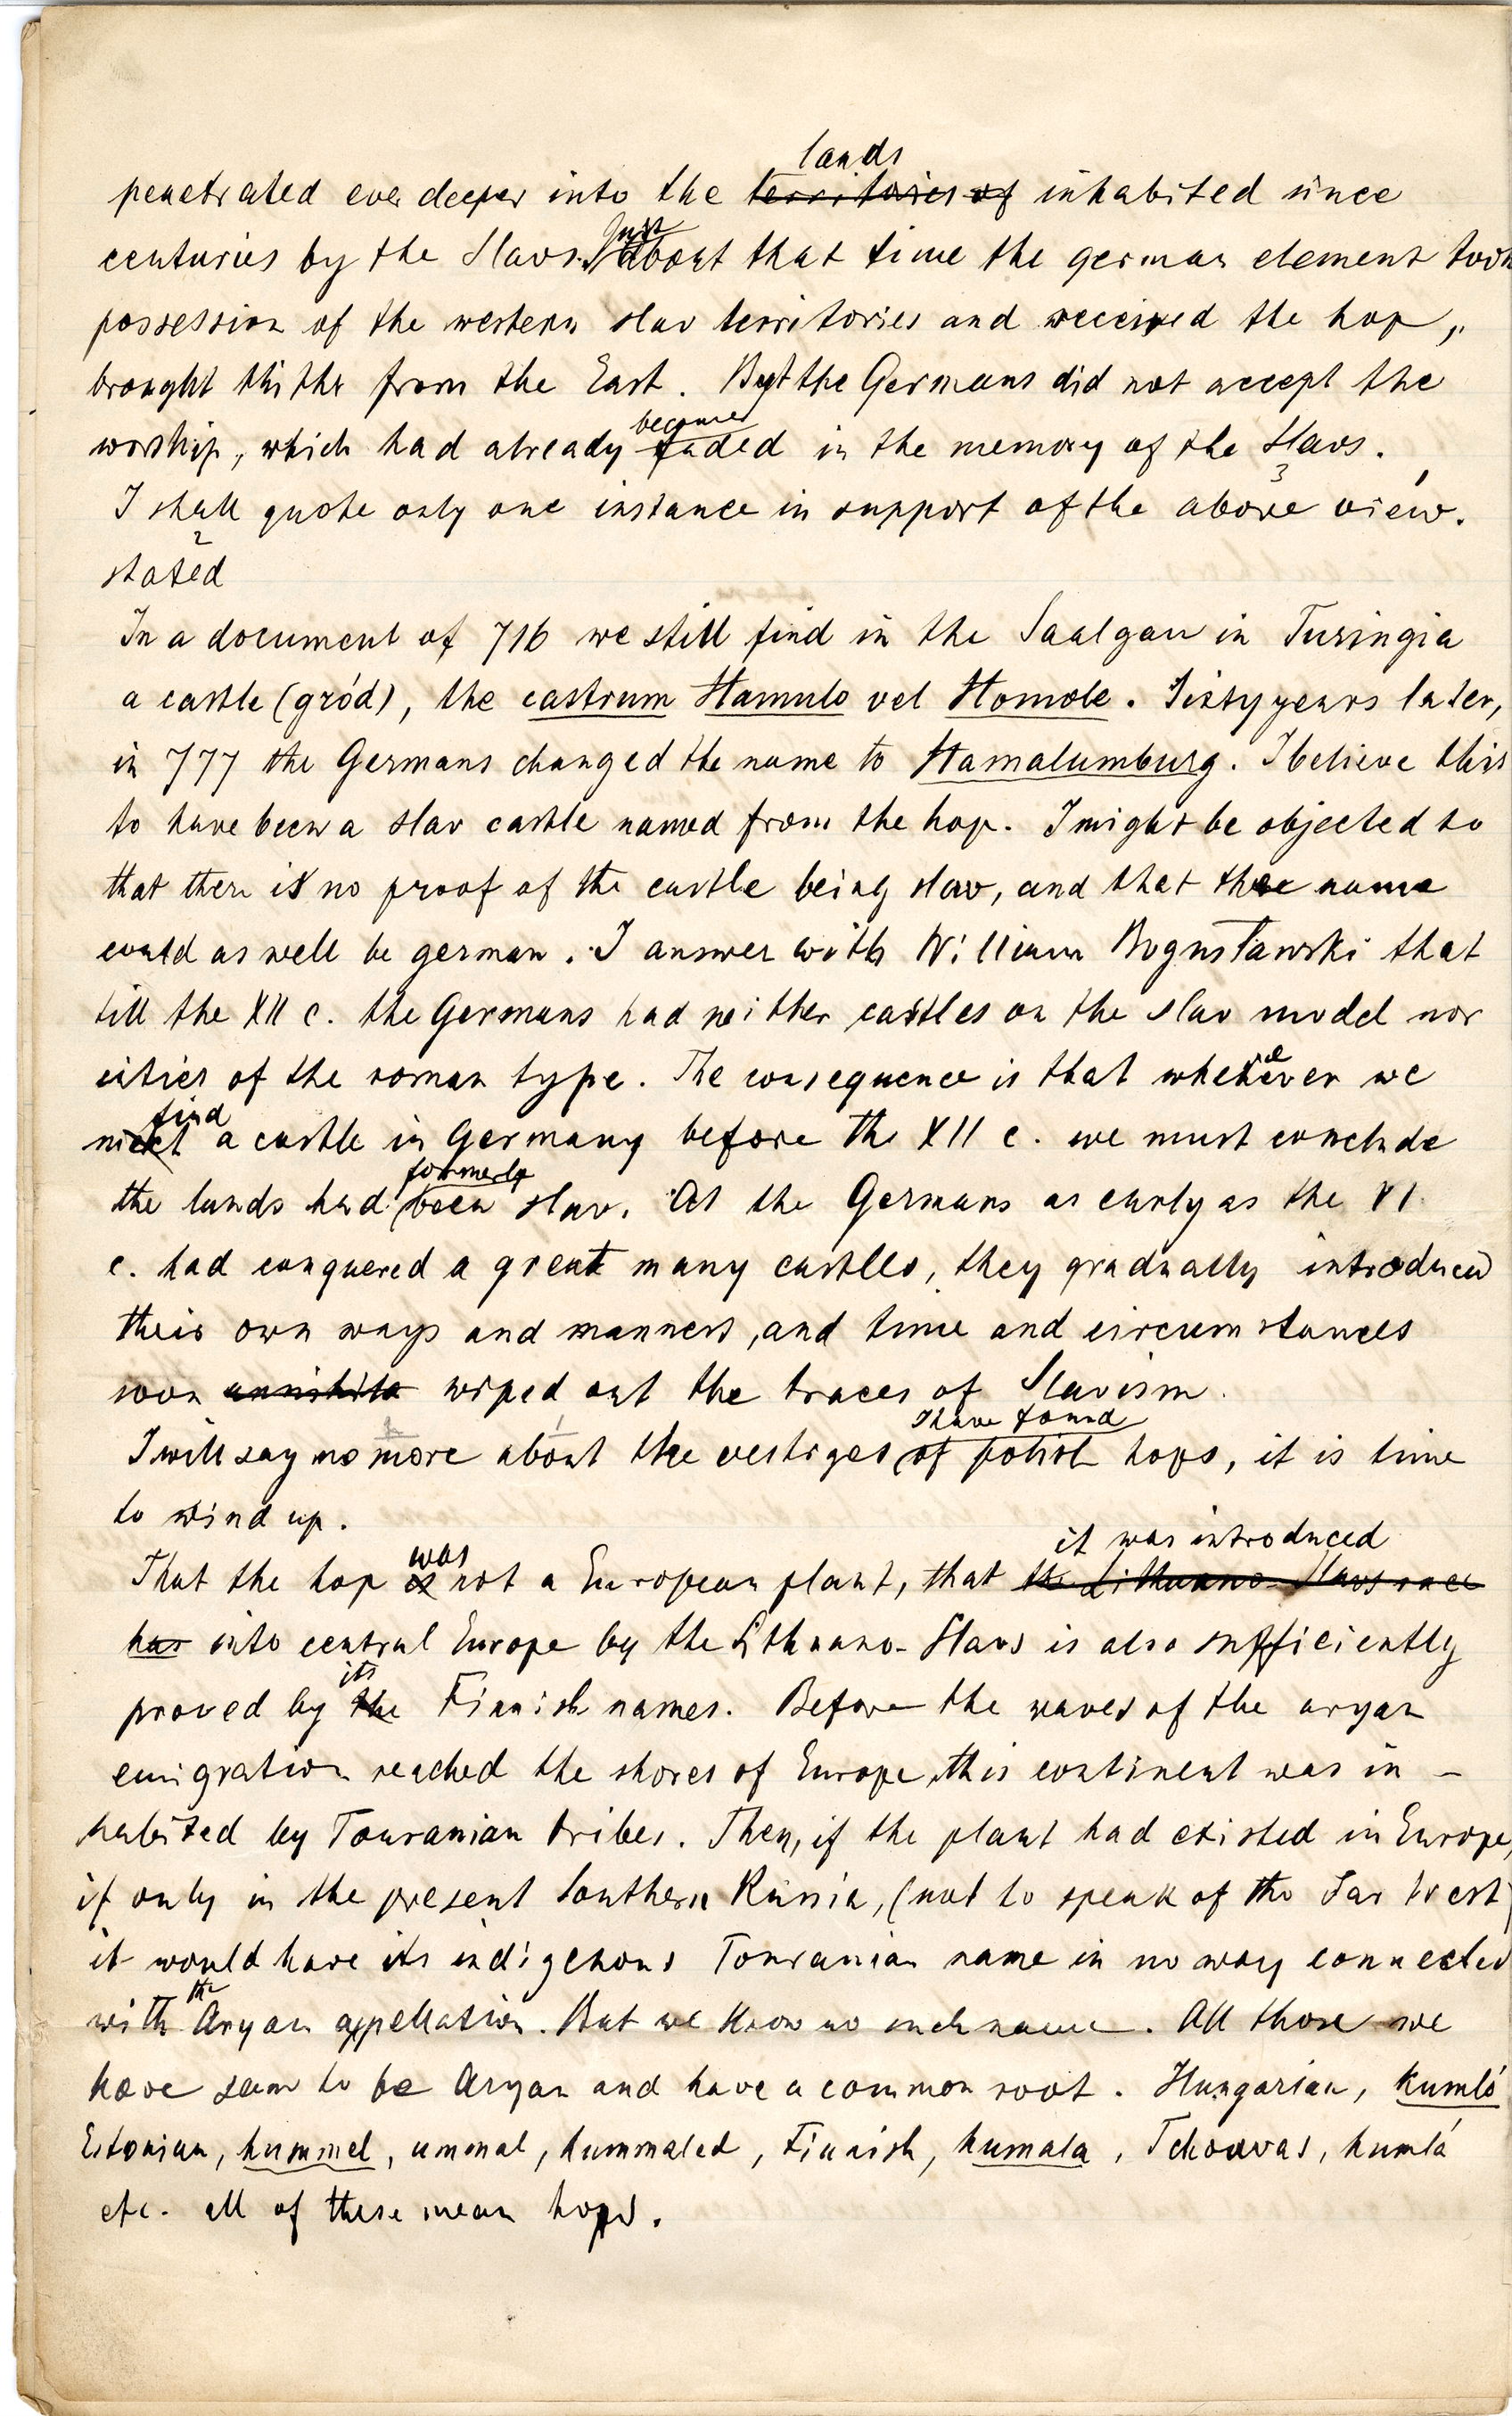 lands
penetrated ever deeper into the territories of inhabited since
Just
centuries by the Slavs. about that time the german element took
possession of the western slav territories and received the hop,
brought thither from the East. But the Germans did not accept the
become
worship, which had already faded in the memory of the Slavs.
3
I shall quote only one instance in support of the above view.
2
stated
In a document of 716 we still find in the Saalgau in Turingia
a castle (gród), the castrum Hamulo vel Homole. Sixty years later,
in 777 the Germans changed the name to Hamalumburg. I believe this
to have been a slav castle named from the hop. I might be objected to
that there is no proof of the castle being slav, and that the name
could as well be german. I answer with William Bogusławski that
till the XII c. the Germans had neither castles on the slav model nor
cities of the roman type. The consequence is that whenever we
find
meet a castle in Germany before the XII c. we must conclude
formerly
the lands had been slav. As the Germans as early as the VI
c. had conquered a great many castles, they gradually introduced
their own ways and manners, and time and circumstances
soon annihila wiped out the traces of Slavism.
I have found
I will say no more about the vestiges of polish hops, it is time
to wind up.
was it was introduced
That the hop is not a European plant, that the Lithuano-Slavs race
has into central Europe by the Lithuano-Slavs is also sufficiently
its
proved by the Finnish names. Before the waves of the aryan
emigration reached the shores of Europe, this continent was in-
habited by Touranian tribes. Then, if the plant had existed in Europe,
if only in the present Southern Russia, (not to speak of the Far West)
it would have its indigenous Touranian name in no way connected
the
with Aryan appellation. But we know no such name. All those we
have seem to be Aryan and have a common root. Hungarian, kumló
Estonian, hummel, ummal, hummaled, Finnish, humala, Tchouvas, humlá
etc. all of these mean hops.